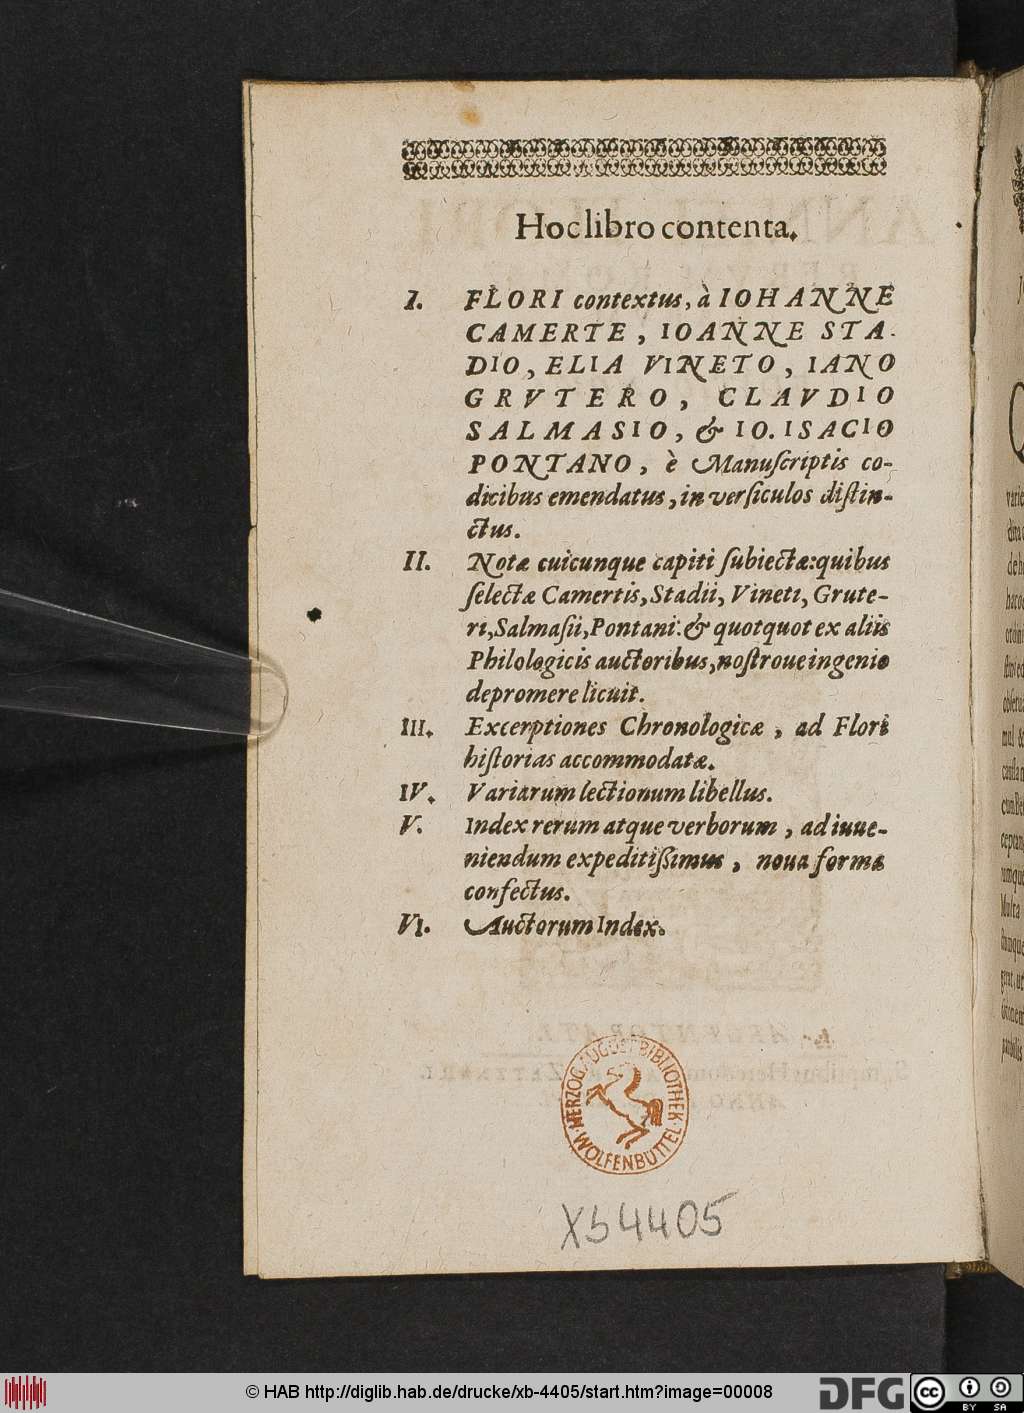 Hoc libro contenta.
I. FLORI contextus, à IOHANNE
CAMERTE, IOANNE STA-
DIO, ELIA VINETO, IANO
GRVTERO, CLAVDIO
SALMASIO, & IO. ISACIO
PONTANO, è Manuſcriptis co-
dicibus emendatus, in verſiculos diſtin-
ctus.
II. Notæ cuicunque capiti ſubiectæ: quibus
ſelectæ Camertis, Stadii, Vineti, Grute-
ri, Salmaſii, Pontani: & quotquot ex aliis
Philologicis auctoribus, noſtroue ingenio
depromere licuit.
III. Excerptiones Chronologicæ, ad Flori
hiſtorias accommodatæ.
IV. Variarum lectionum libellus.
V. Index rerum atque verborum, ad iuue-
niendum expeditiſsimus, noua forma
confectus.
VI. Auctorum Index.
HERZOG AUGUST BIBLIOTHEK
WOLFENBÜTTEL
Xb 4405
© HAB http://diglib.hab.de/drucke/xb-4405/start.htm?image=00008
DFG
cc BY SA